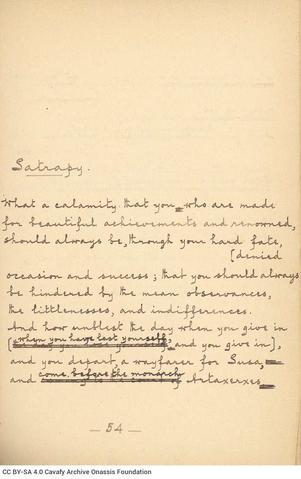 Satrapy.
What a calamity that you who are made
for beautiful achievements and renowned,
should always be, through your hard fate,
[denied
occasion and success; that you should always
be hindered by the mean observances,
the littlenesses, and indifferences.
And how unblest the day when you give in
(when you have lost yourself, and you give in),
and you depart, a wayfarer for Susa,
and come before the monarch Artaxerxes
— 54 —
CC BY-SA 4.0 Cavafy Archive Onassis Foundation